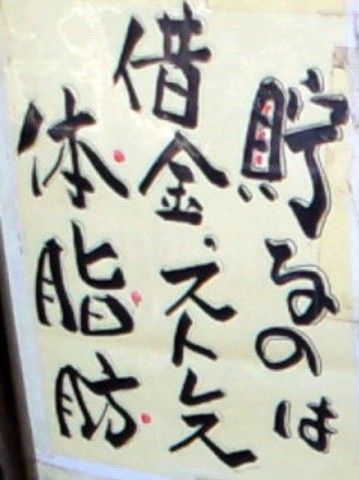 貯るのは
借金、ストレス
体脂肪